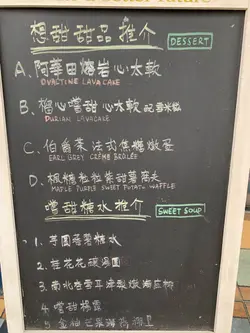 想甜甜品推介 DESSERT
A、阿華田熔岩心太軟
OVALTINE LAVA CAKE
B、榴心嚐甜心太軟
DURIAN LAVACAKE
C、伯爵茶法式焦糖燉蛋
EARL GREY CRÈME BRÛLÉE
D、楓糖粒粒紫甜薯窩夫
MAPLE PURPLE SWEET POTATO WAFFLE
嚐甜糖水推介 SWEET SOUP
1. 芋圓番薯糖水
2. 桂花
3. 南北杏雪耳
4. 嚐甜楊露
5.